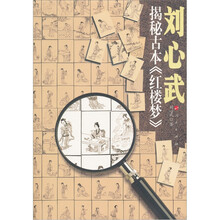 刘心武
揭秘古本《红楼梦》